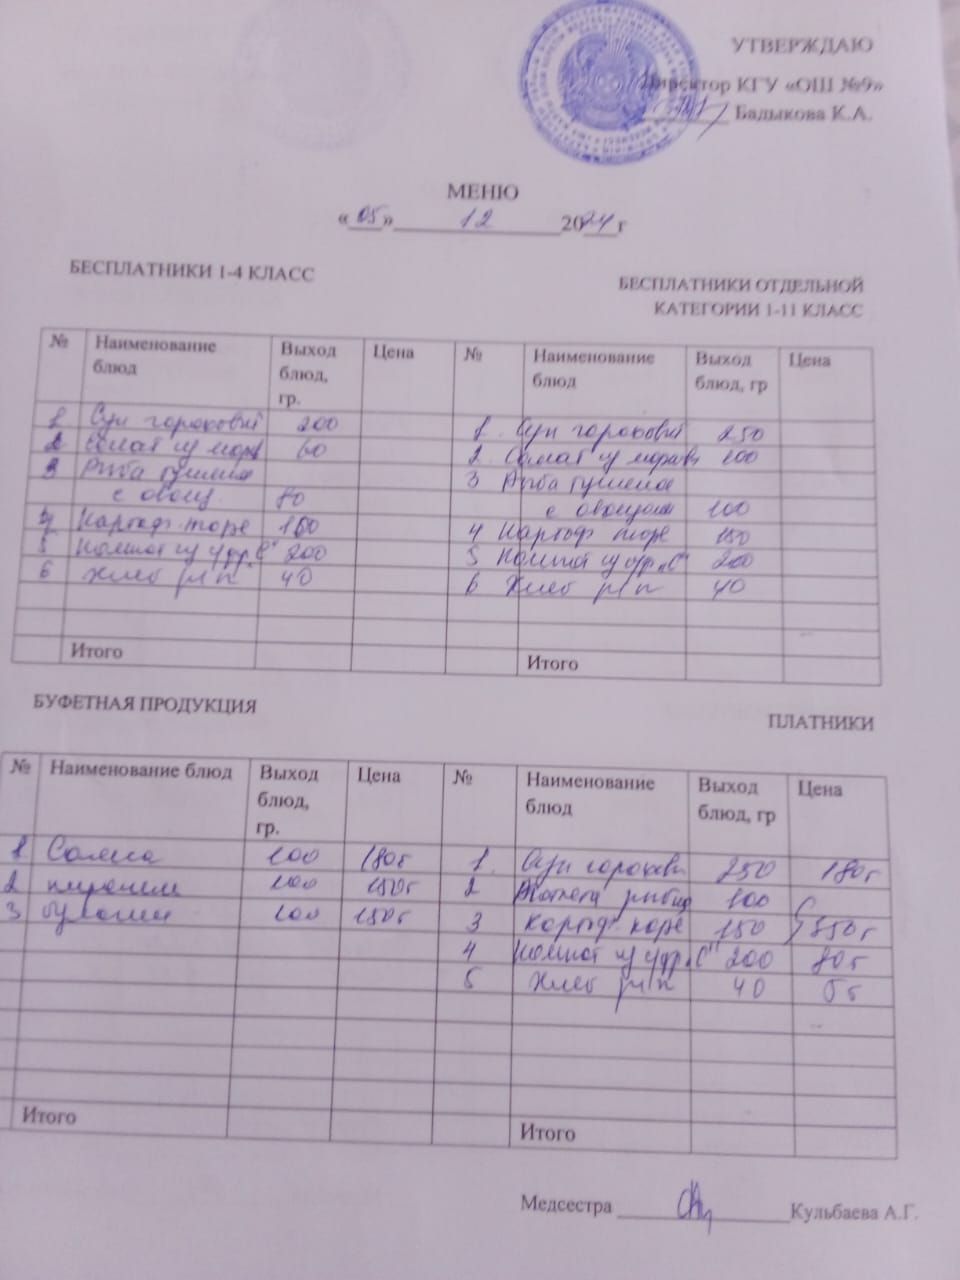 УТВЕРЖДАЮ
Директор КГУ «ОШ №9»
Бадыкова К.А.
МЕНЮ
«05» 12 2024 г
БЕСПЛАТНИКИ 1-4 КЛАСС
БЕСПЛАТНИКИ ОТДЕЛЬНОЙ
КАТЕГОРИИ 1-11 КЛАСС
№ Наименование блюд Выход блюд, гр. Цена № Наименование блюд Выход блюд, гр Цена
1 Суп гороховый 200 1. Суп гороховый 250
2 Салат из морк 60 2. Салат из моркови 100
3 Рыба тушеная 3 Рыба тушеная
с овощ. 80 с овощами 100
4 Картоф. пюре 4 Картоф пюре 150
5 Компот из с/фр. "С" 200 5 Компот из с/фр "С" 200
6 Хлеб рж/п 40 6 Хлеб рж/п 40
Итого Итого
БУФЕТНАЯ ПРОДУКЦИЯ
ПЛАТНИКИ
№ Наименование блюд Выход блюд, гр. Цена № Наименование блюд Выход блюд, гр Цена
1 100 180т 1. Суп горохов 250 180т
2 100 150т 2 Котлета рыбн 100
3 100 150т 3 Картоф пюре 150 350т
4 Компот из с/фр "С" 200 80т
5 Хлеб рж/п 40 5т
Итого Итого
Медсестра Кульбаева А.Г.